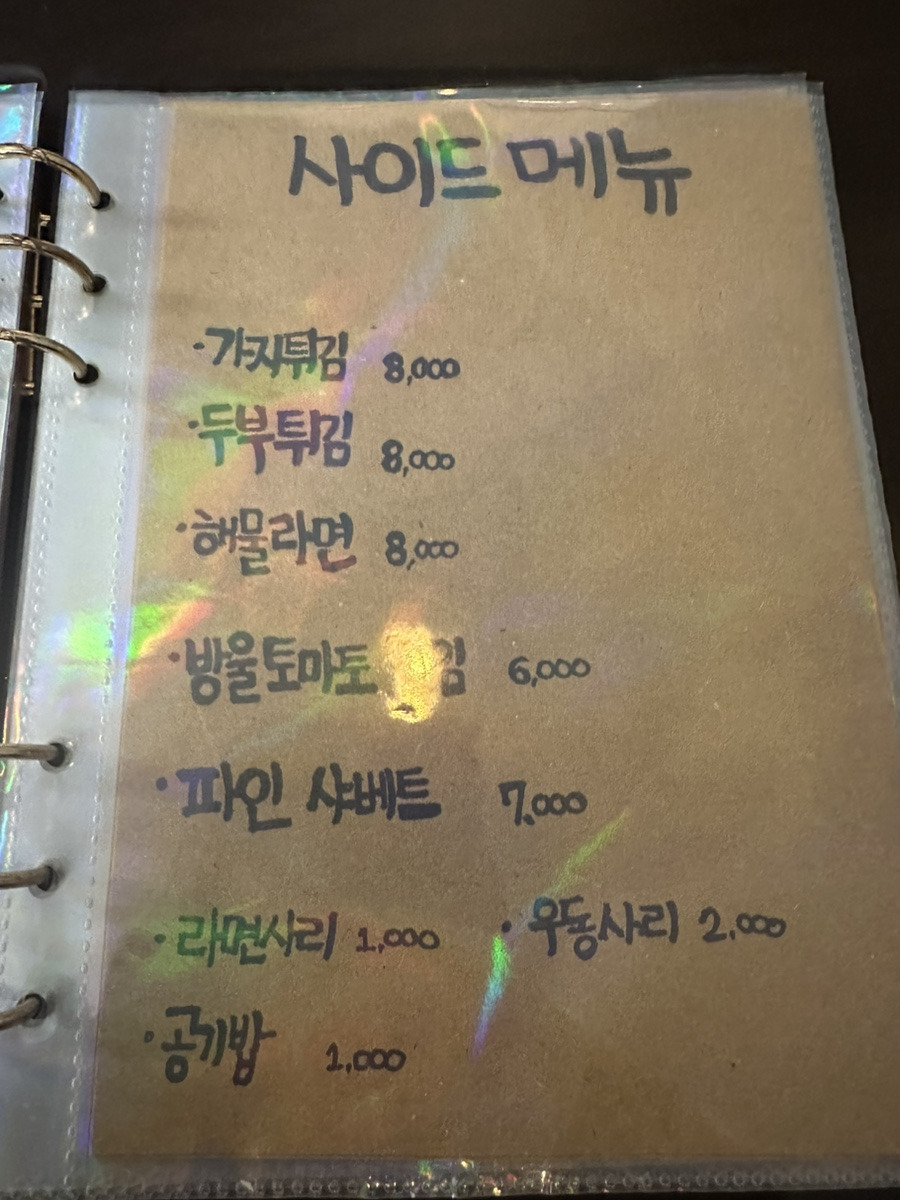 사이드 메뉴
·가지튀김 8,000
·두부튀김 8,000
·해물라면 8,000
·방울토마토 6,000
·파인 샤베트 7,000
·라면사리 1,000 ·우동사리 2,000
·공기밥 1,000